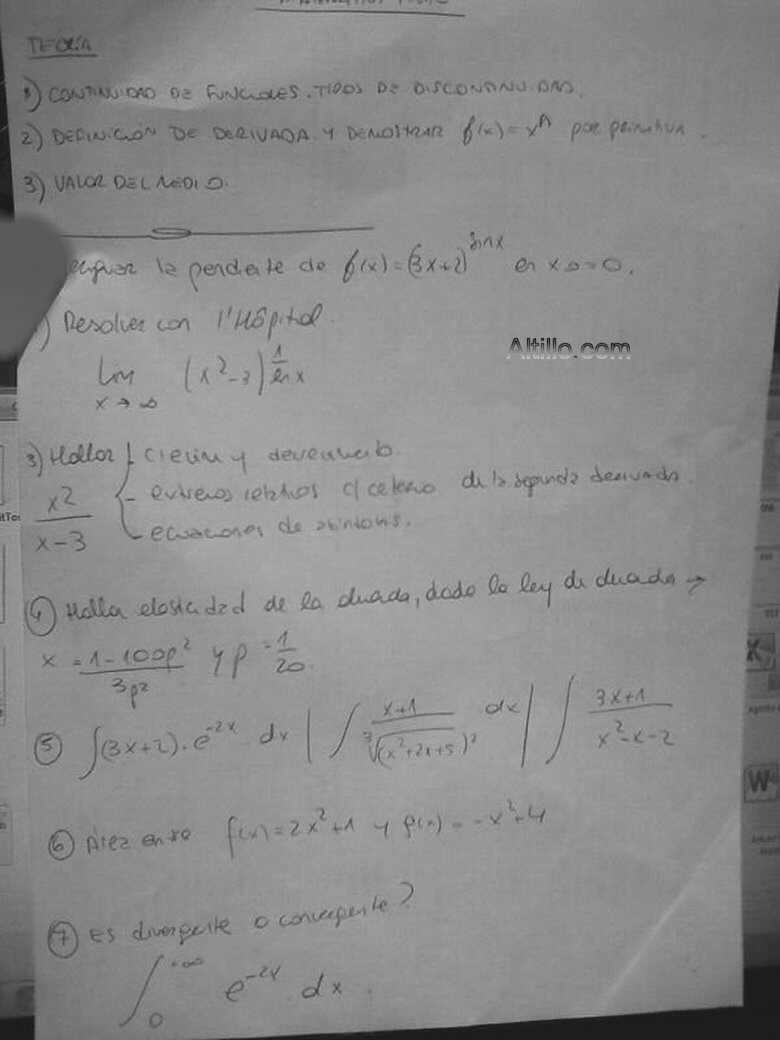 TEORÍA
1) CONTINUIDAD DE FUNCIONES. TIPOS DE DISCONTINUIDAD.
2) DEFINICIÓN DE DERIVADA Y DEMOSTRAR f(x) = x^n por
3) VALOR DEL MEDIO.
la pendiente de f(x) = (3x+2)^sin x en x0 = 0.
) Resolver con l'Hôpital.
Altillo.com
lim (x²-3)^(1/ln x)
x → ∞
3) Hallar
x²/(x-3)
- extremos relativos c/ criterio de la segunda derivada.
- ecuaciones de
4) Hallar elasticidad de la duada, dado la ley de duada →
x = (1-100p²)/(3p²) y p = 1/20.
5) ∫(3x+2).e^-2x dx | ∫ (x+1)/∛(x²+2x+5)² dx | ∫ (3x+1)/(x²-x-2)
6) Área entre f(x) = 2x²+1 y f(x) = -x²+4
7) Es divergente o convergente?
∫ e^-2x dx.
0